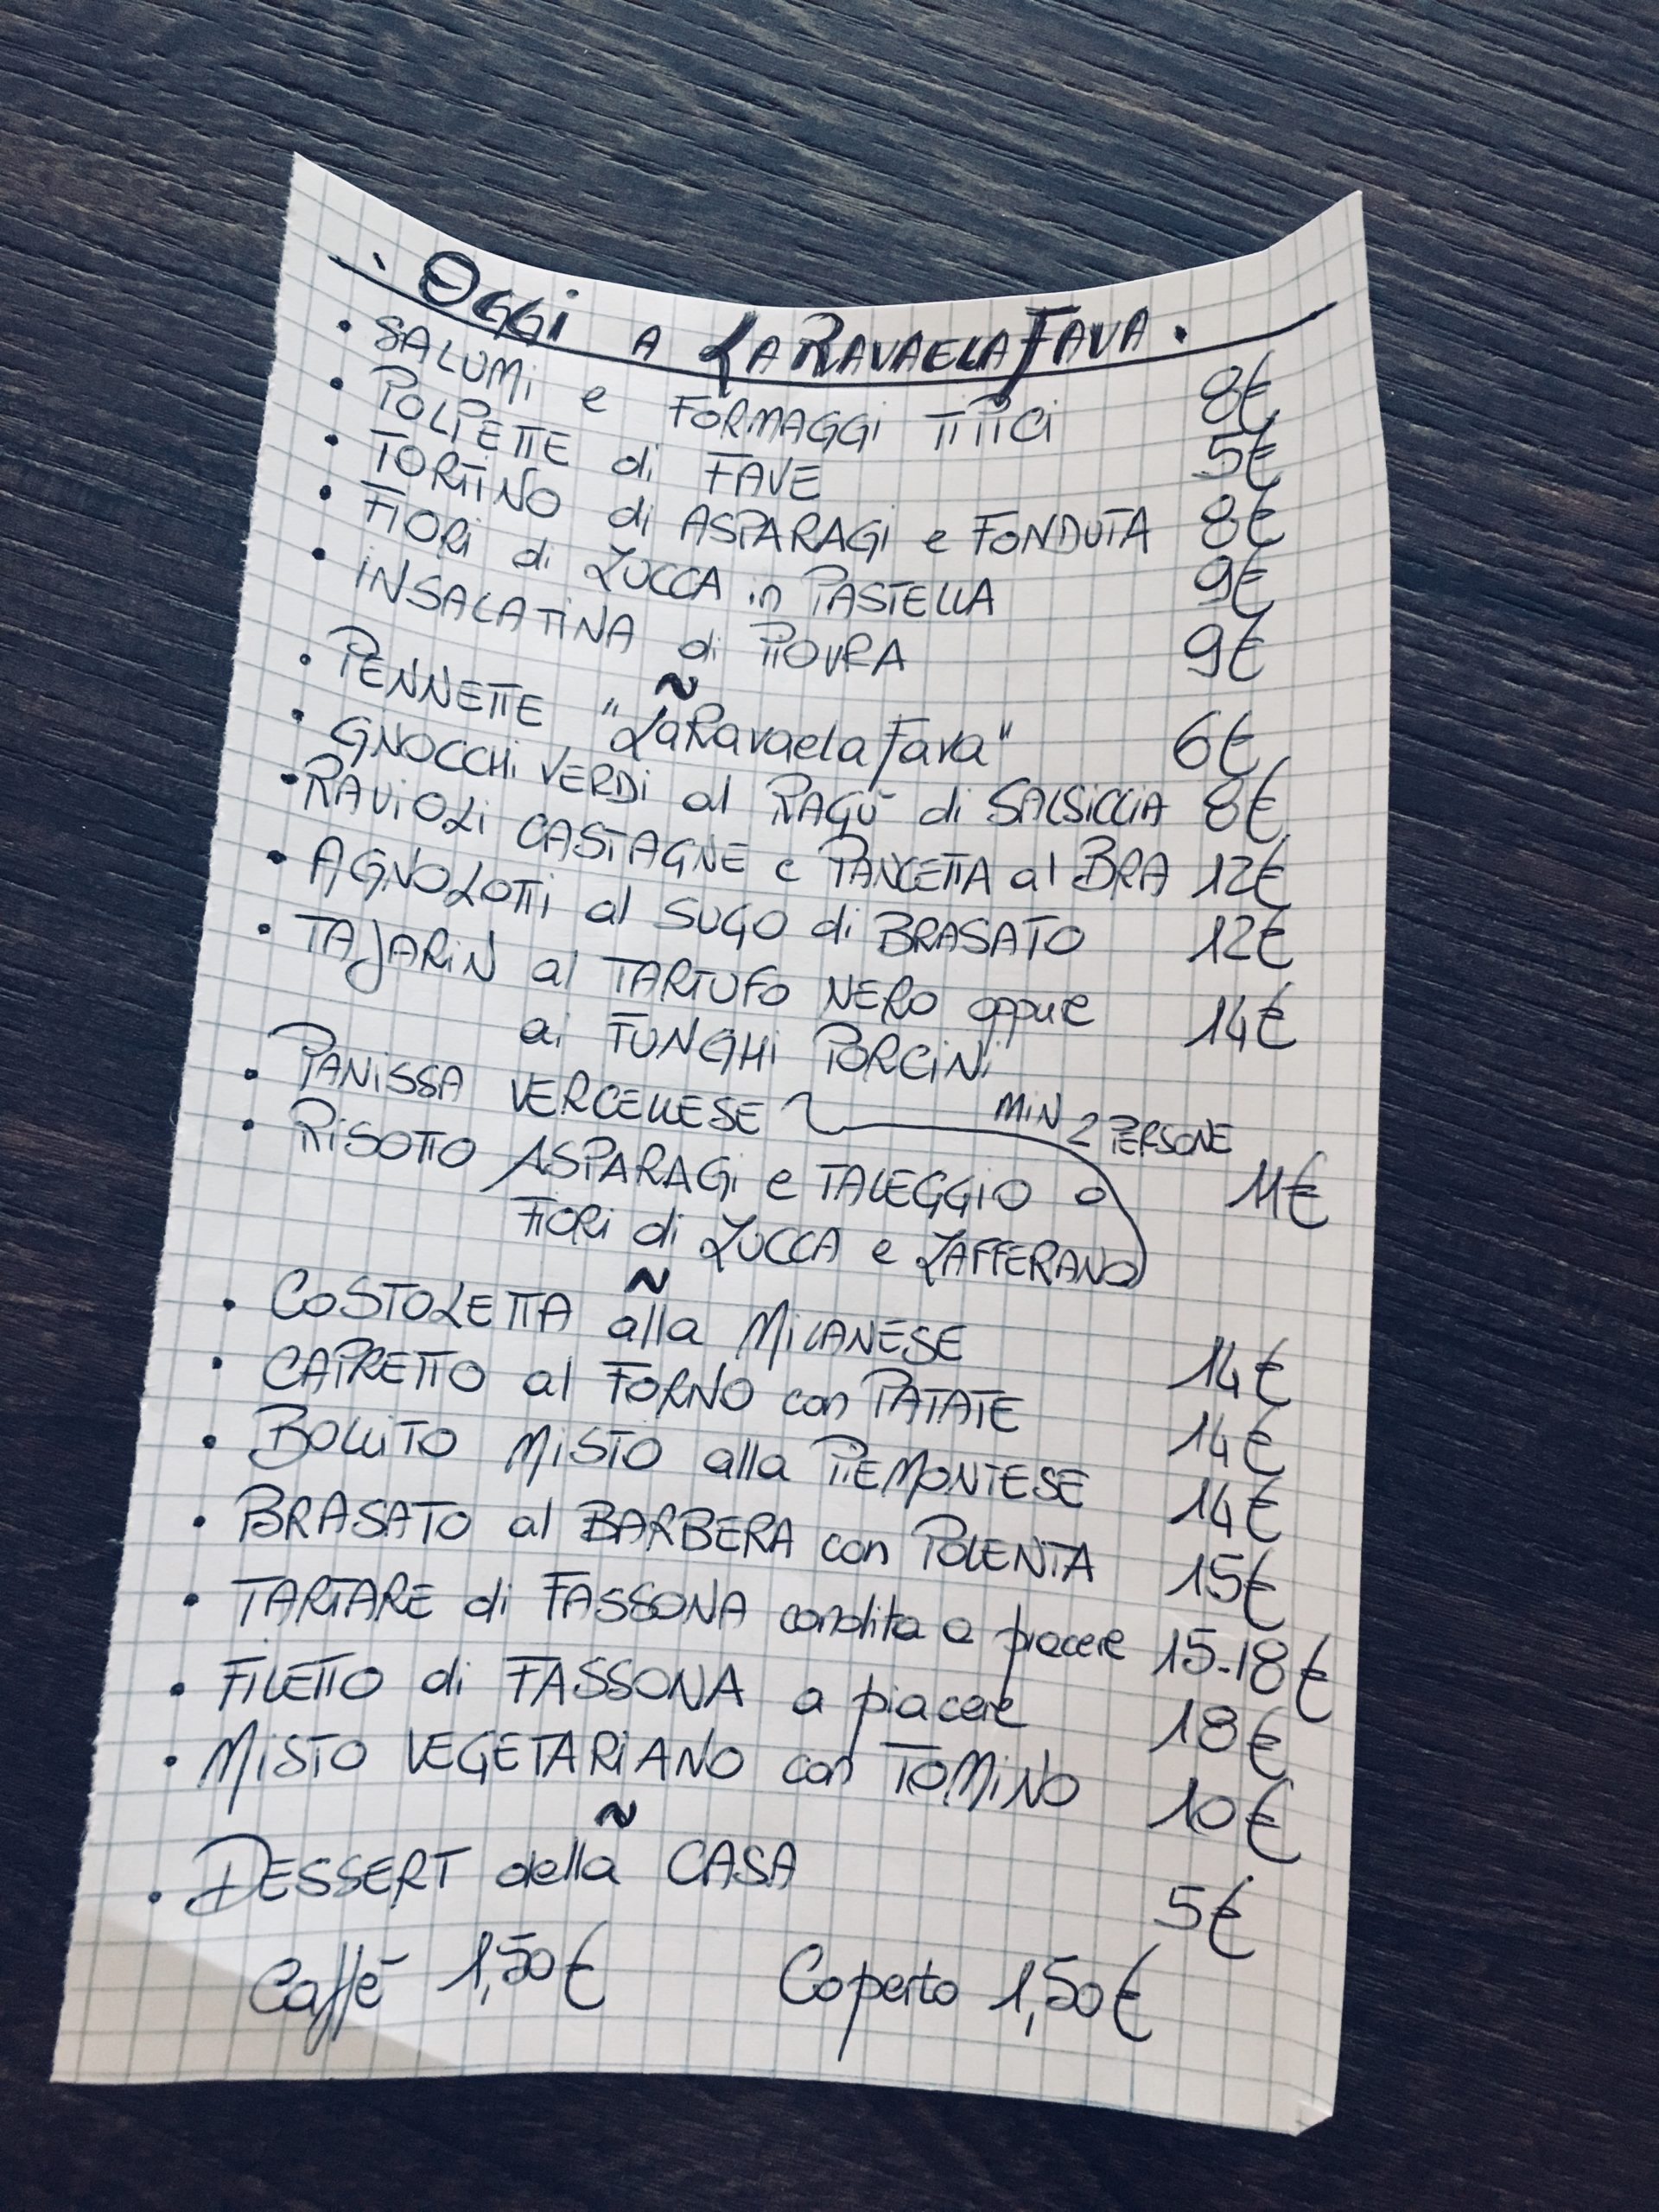 · Oggi a LaRavaelaFava ·
· SALUMi e FORMAGGi TiPiCi 8€
· POLPETTE di FAVE 5€
· TORTiNO di ASPARAGi e FONDUTA 8€
· FIORi di ZUCCA in PASTELLA 9€
· iNSALATiNA di PiOVRA 9€
~
· PENNETTE "LaRavaelaFava" 6€
· GNOCCHi VERDi al RAGÙ di SALSiCCiA 8€
· RAViOLi CASTAGNE e PANCETTA al BRA 12€
· AGNOLOTTi al SUGO di BRASATO 12€
· TAJARiN al TARTUFO NERO oppure
ai FUNGHi PORCiNi 14€
· PANiSSA VERCELLESE MiN 2 PERSONE
· RiSOTTO ASPARAGi e TALEGGiO o 11€
FiORi di ZUCCA e ZAFFERANO
~
· COSTOLETTA alla MiLANESE 14€
· CAPRETTO al FORNO con PATATE 14€
· BOLLiTO MiSTO alla PiEMONTESE 14€
· BRASATO al BARBERA con POLENTA 15€
· TARTARE di FASSONA condita a piacere 15-18€
· FiLETTO di FASSONA a piacere 18€
· MiSTO VEGETARiANO con TOMiNO 10€
~
· DESSERT della CASA 5€
Caffè 1,50€ Coperto 1,50€